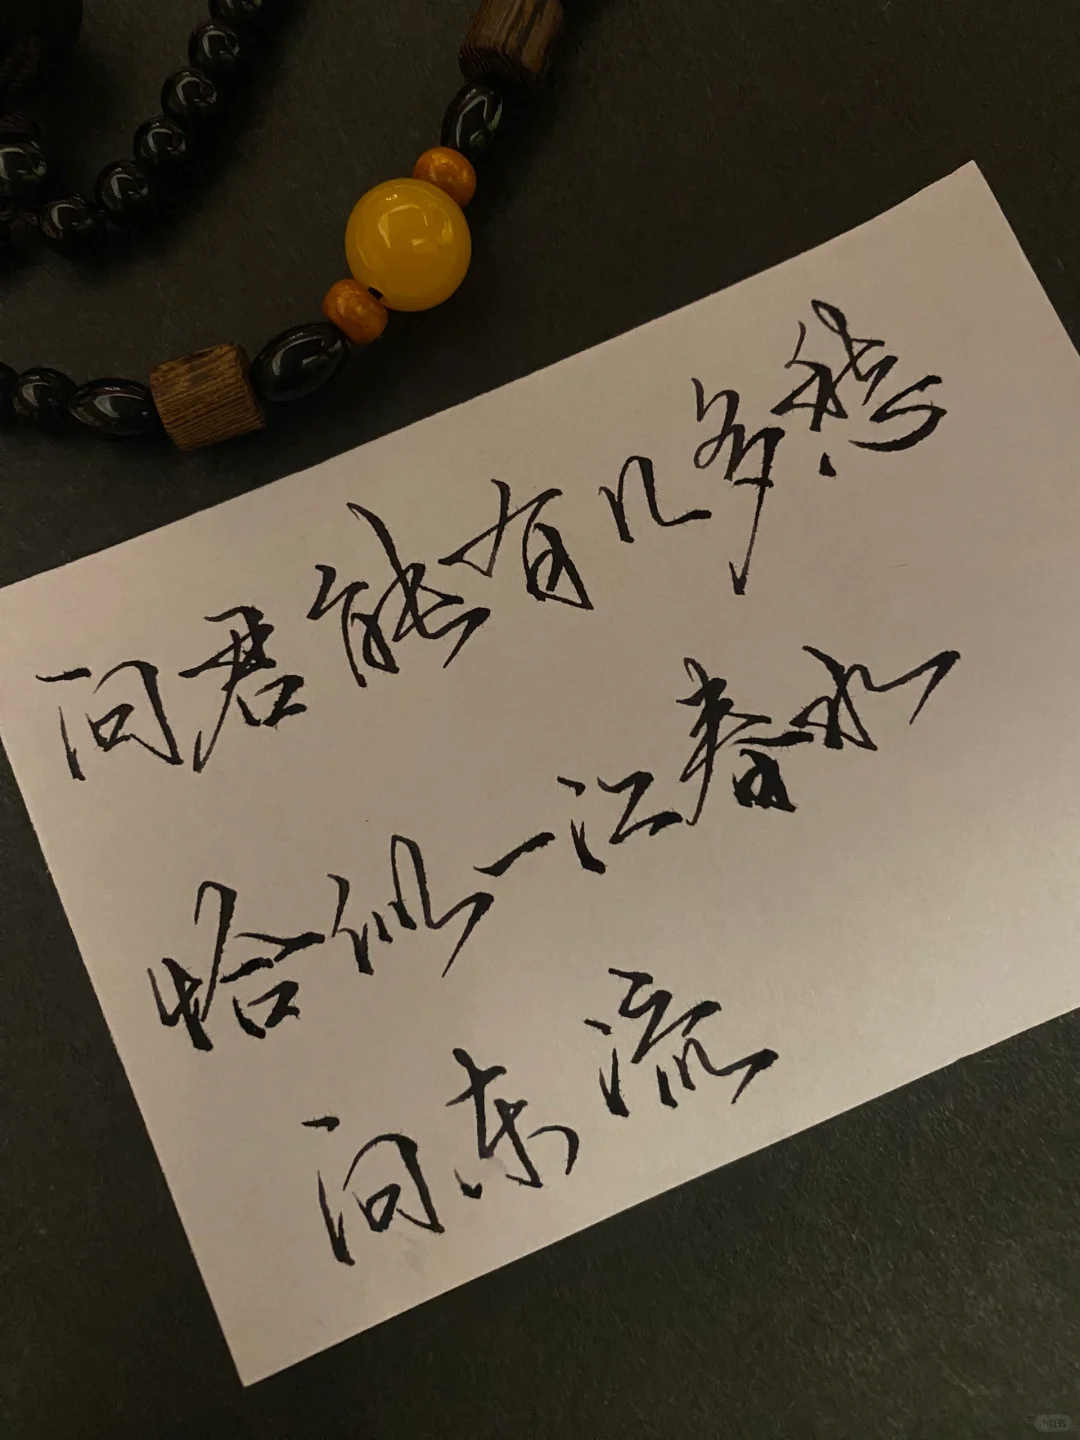 问君能有几多愁
恰似一江春水
向东流